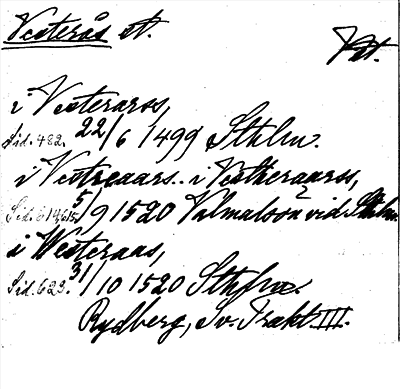 Vesterås st.
Vst.
i Vesterarss,
Sid. 482. 22/6 1499 Sthlm.
i Vestreaars.. i Vestheraarss,
Sid. 614, 615 5/9 1520 Valmalsö vid Sthlm.
i Westeraas,
Sid. 623. 31/10 1520 Sthlm.
Rydberg, Sv. Trakt. III.